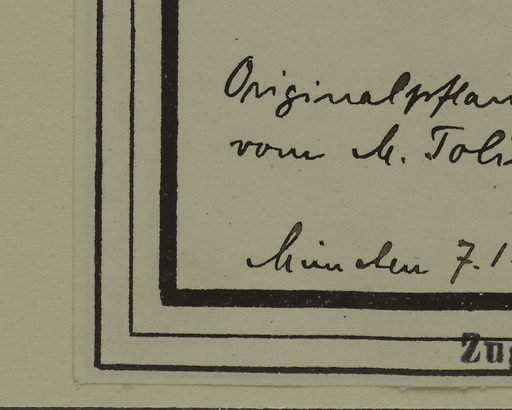 Originalpflan
vom M. Tolm
München 7.1
Zug